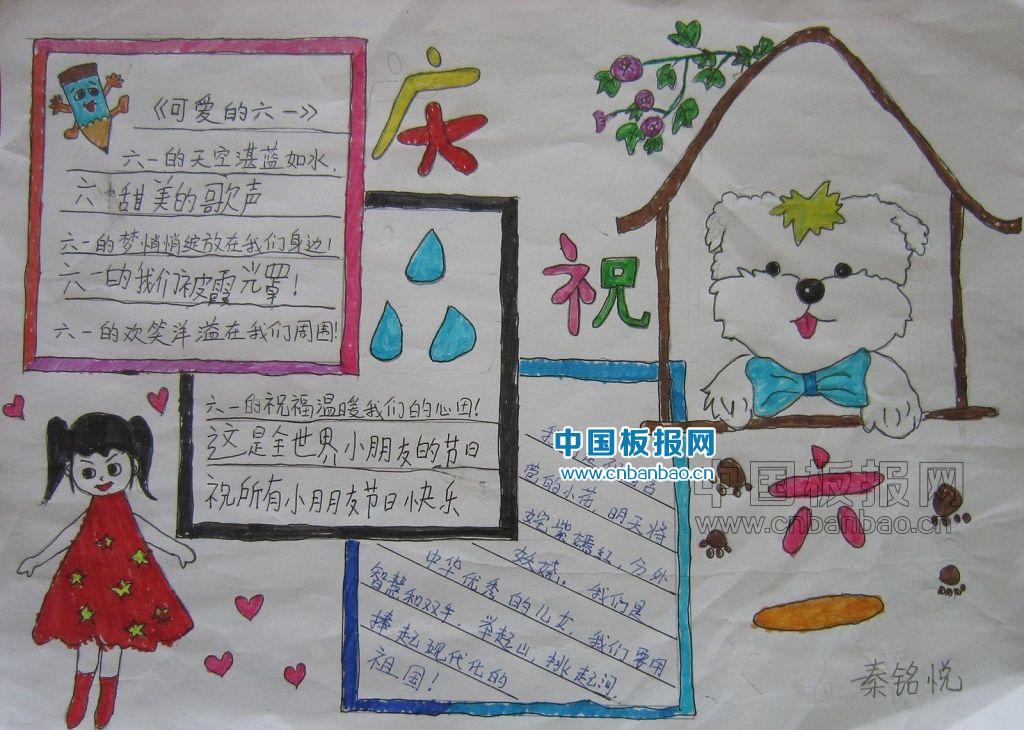 《可爱的六一》
六一的天空湛蓝如水,
六一甜美的歌声
六一的梦悄悄绽放在我们身边!
六一的我们被霞光罩!
六一的欢笑洋溢在我们周围!
庆
祝
六
一
六一的祝福温暖我们的心田!
这是全世界小朋友的节日
祝所有小朋友节日快乐
我
苞的小荷,明天将
姹紫嫣红,分外
妖娆。我们是
中华优秀的儿女,我们要用
智慧和双手,举起山,挑起河,
捧起现代化的
祖国!
秦铭悦
中国板报网
www.cnbanbao.cn
中国板报网
www.cnbanbao.cn